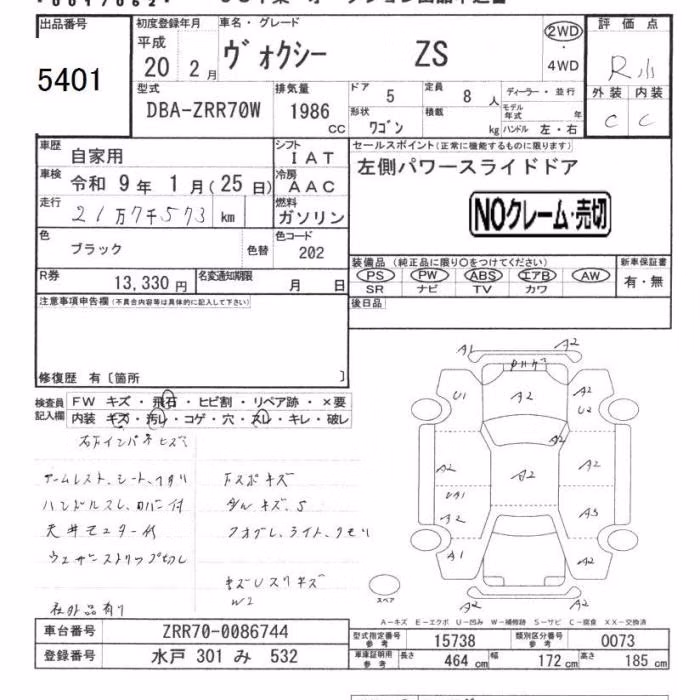 出品番号
5401
初度登録年月
平成
20 2月
車名・グレード
ヴォクシー ZS
2WD
・
4WD
評価点
R
外装 内装
C C
型式
DBA-ZRR70W
排気量
1986
CC
ドア 5
定員 8 人
形状 ワゴン
積載 kg
ディーラー・並行
モデル年式 年
ハンドル 左・右
車歴 自家用
シフト IAT
車検 令和 9年 1月(25日)
冷房 AAC
走行 21万7千573 km
燃料 ガソリン
色 ブラック 色替
色コード 202
R券 13,330円
名変通知期限 月 日
セールスポイント(正常に機能するものに限ります)
左側パワースライドドア
NOクレーム・売切
装備品(純正品に限り○をつけてください)
PS PW ABS エアB AW
SR ナビ TV カワ
新車保証書
有・無
後日品
注意事項申告欄(不具合内容等は具体的に記入して下さい)
修復歴 有〔箇所 〕
検査員記入欄
FW キズ・飛石・ヒビ割・リペア跡・×要
内装 キズ・汚レ・コゲ・穴・スレ・キレ・破レ
ハンドルスレ、カバー付
天井モニター付
下スポキズ
社外品有り
W2
A1 A2
U1 A2 A2
U2
A2
A2 A2 A2
UA1
A2 A3
A1 A2
A2 A2
スペア
A－キズ E－エクボ U－凹み W－補修跡 S－サビ C－腐食 XX－交換済
車台番号 ZRR70-0086744
登録番号 水戸 301 み 532
型式指定番号 参考 15738
類別区分番号 参考 0073
車庫証明用 参考 長さ 464 cm 幅 172 cm 高さ 185 cm